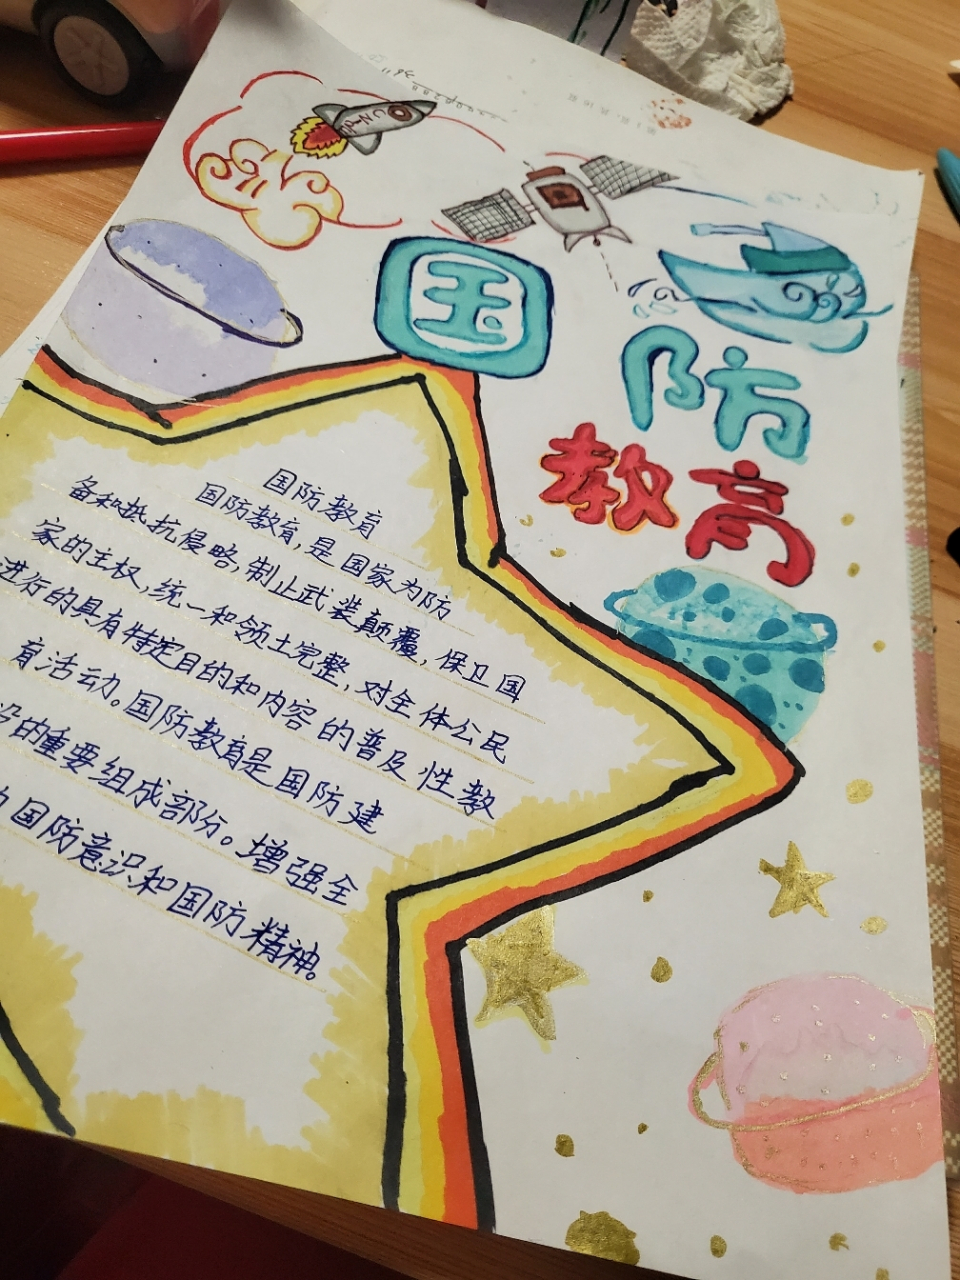 国防
教育
国防教育
国防教育,是国家为防
备和抵抗侵略,制止武装颠覆,保卫国
家的主权,统一和领土完整,对全体公民
进行的具有特定目的和内容的普及性教
育活动。国防教育是国防建
设的重要组成部分。增强全
国防意识和国防精神。